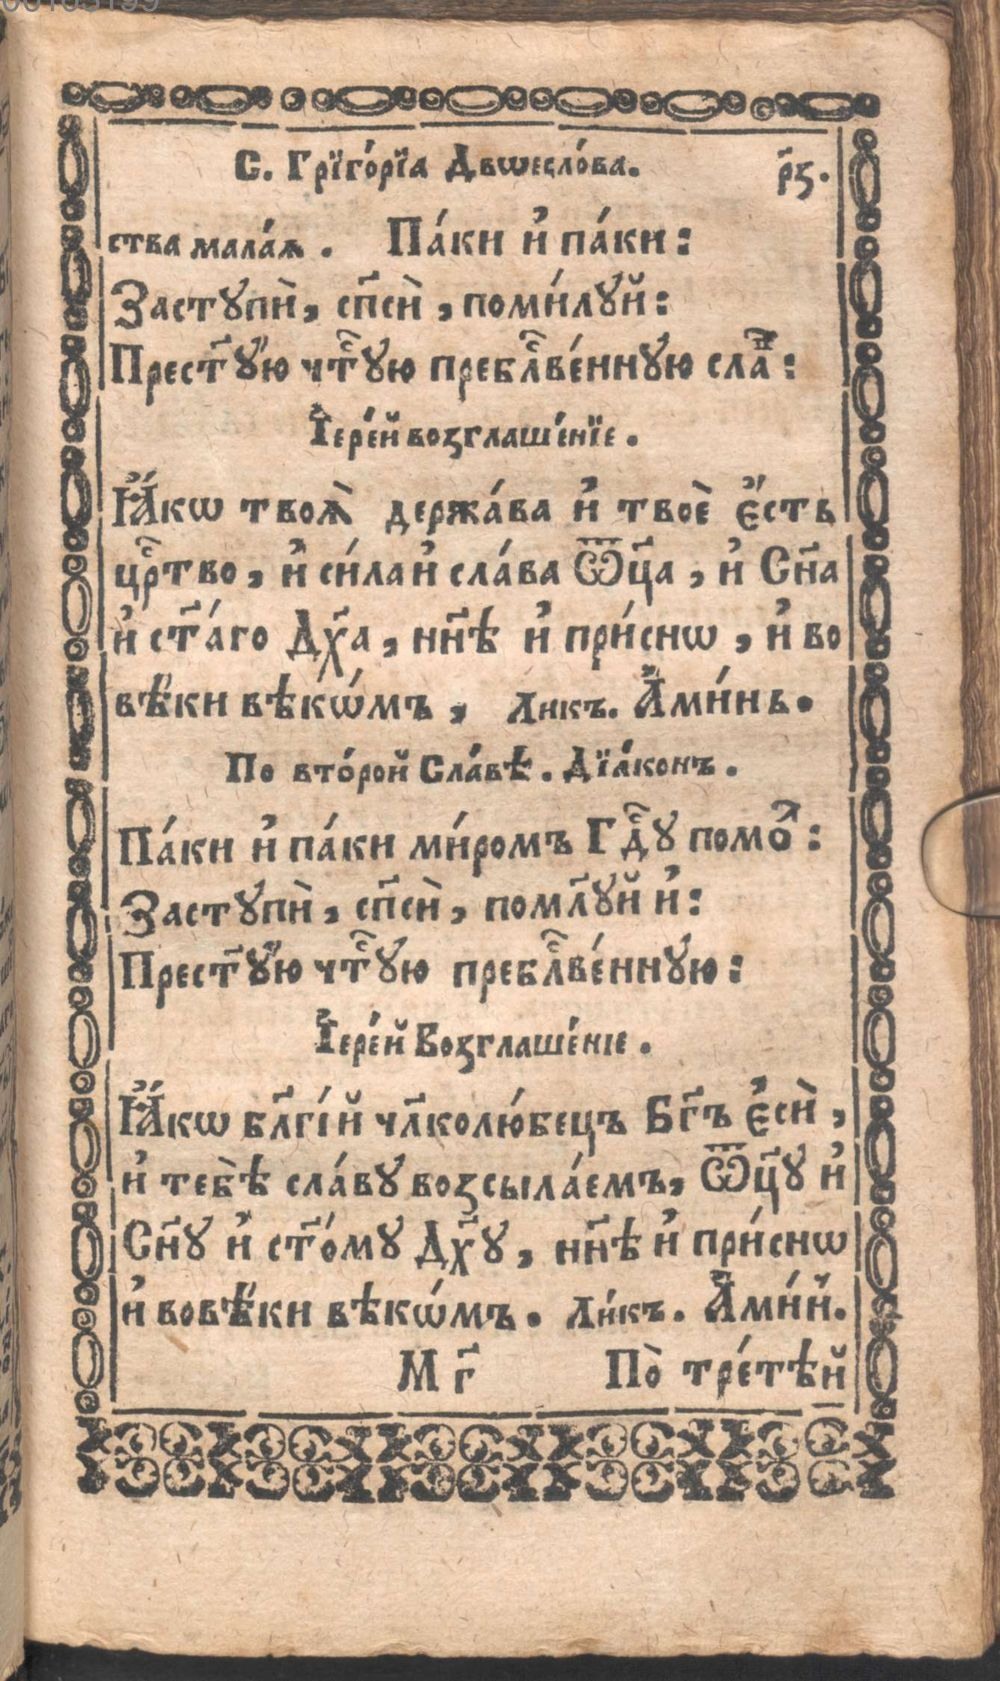 00103199
С. Грїго́рїа Двѡесло́ва. р҃ѕ.
ства мала́ѧ. Па́ки и҆ па́ки:
Заступѝ, сп҃сѝ, поми́луй:
Прест҃ꙋ́ю чтⷭ҇ꙋю преблⷭ҇ве́ннꙋю слаⷡ҇:
І҆ере́й возглаше́нїе.
Ꙗ҆́кѡ твоѧ̀ держа́ва и҆ твоѐ є҆́сть
црⷭ҇тво, и҆ си́ла и҆ сла́ва Ѿц҃а, и҆ Сн҃а
и҆ ст҃а́го Дх҃а, нн҃ѣ и҆ при́снѡ, и҆ во
вѣ́ки вѣкѡ́мъ, Ликъ. А҆ми́нь.
По вто́рой Сла́вѣ. Дїа́конъ.
Па́ки и҆ па́ки ми́ромъ Гдⷭ҇ꙋ помоⷧ҇:
Застꙋпѝ, сп҃сѝ, помл҃ꙋй и҆:
Прест҃ꙋ́ю чтⷭ҇ꙋю преблⷭ҇ве́ннꙋю:
І҆ере́й Возглаше́нїе.
Ꙗ҆́кѡ бл҃гі́й чл҃колю́бецъ Бг҃ъ є҆сѝ,
и҆ тебѣ̀ сла́вꙋ возсыла́емъ, Ѿц҃ꙋ и҆
Сн҃ꙋ и҆ ст҃о́мꙋ Дх҃ꙋ, нн҃ѣ и҆ при́снѡ
и҆ вовѣ́ки вѣкѡ́мъ. Ли́къ. А҆ми́нⸯ.
М г҃ По̀ тре́тѣй